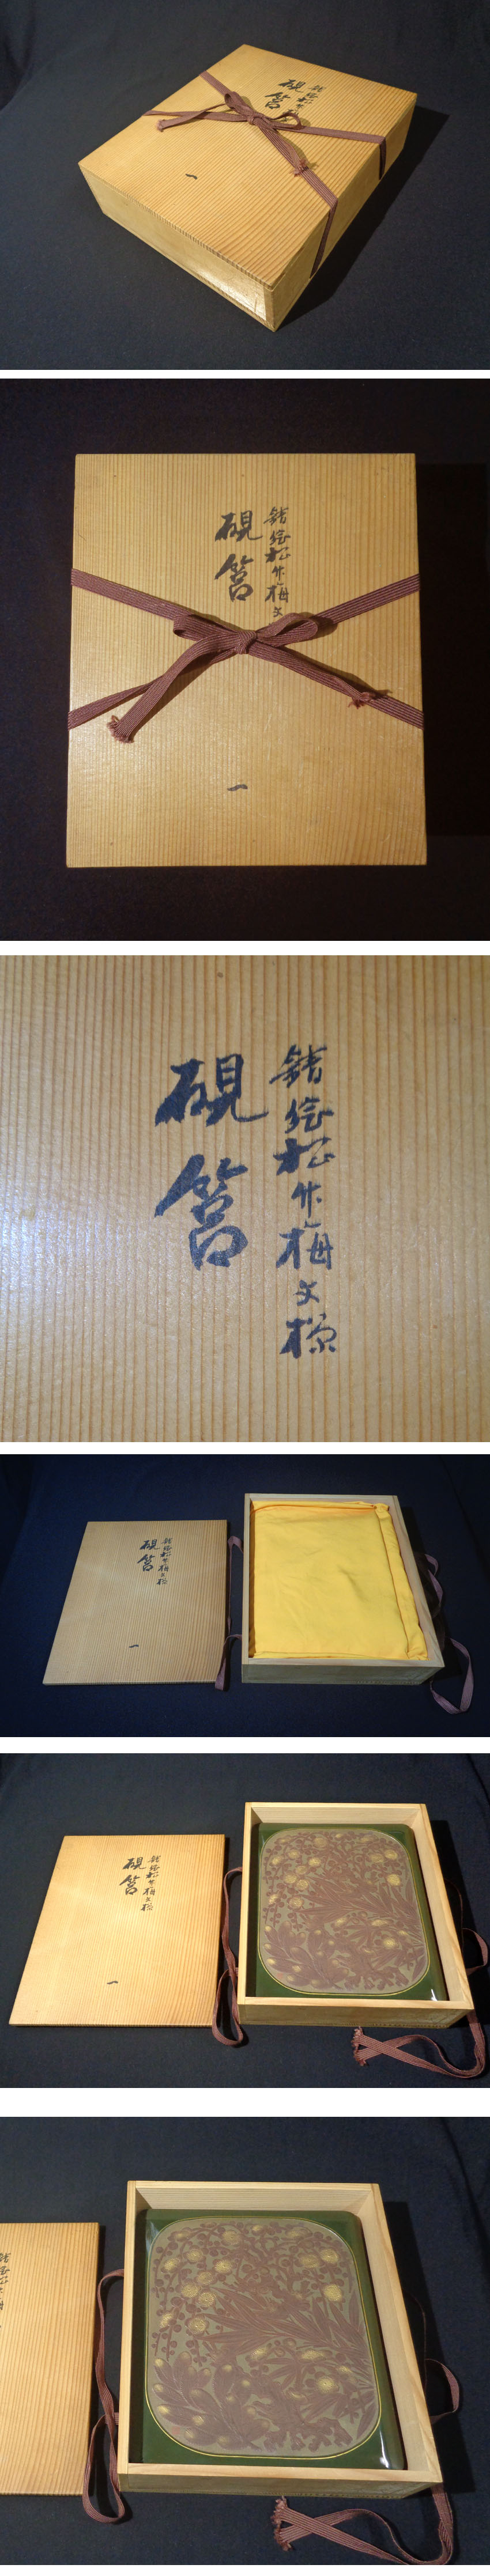 錆絵松竹梅文様
硯筥
一